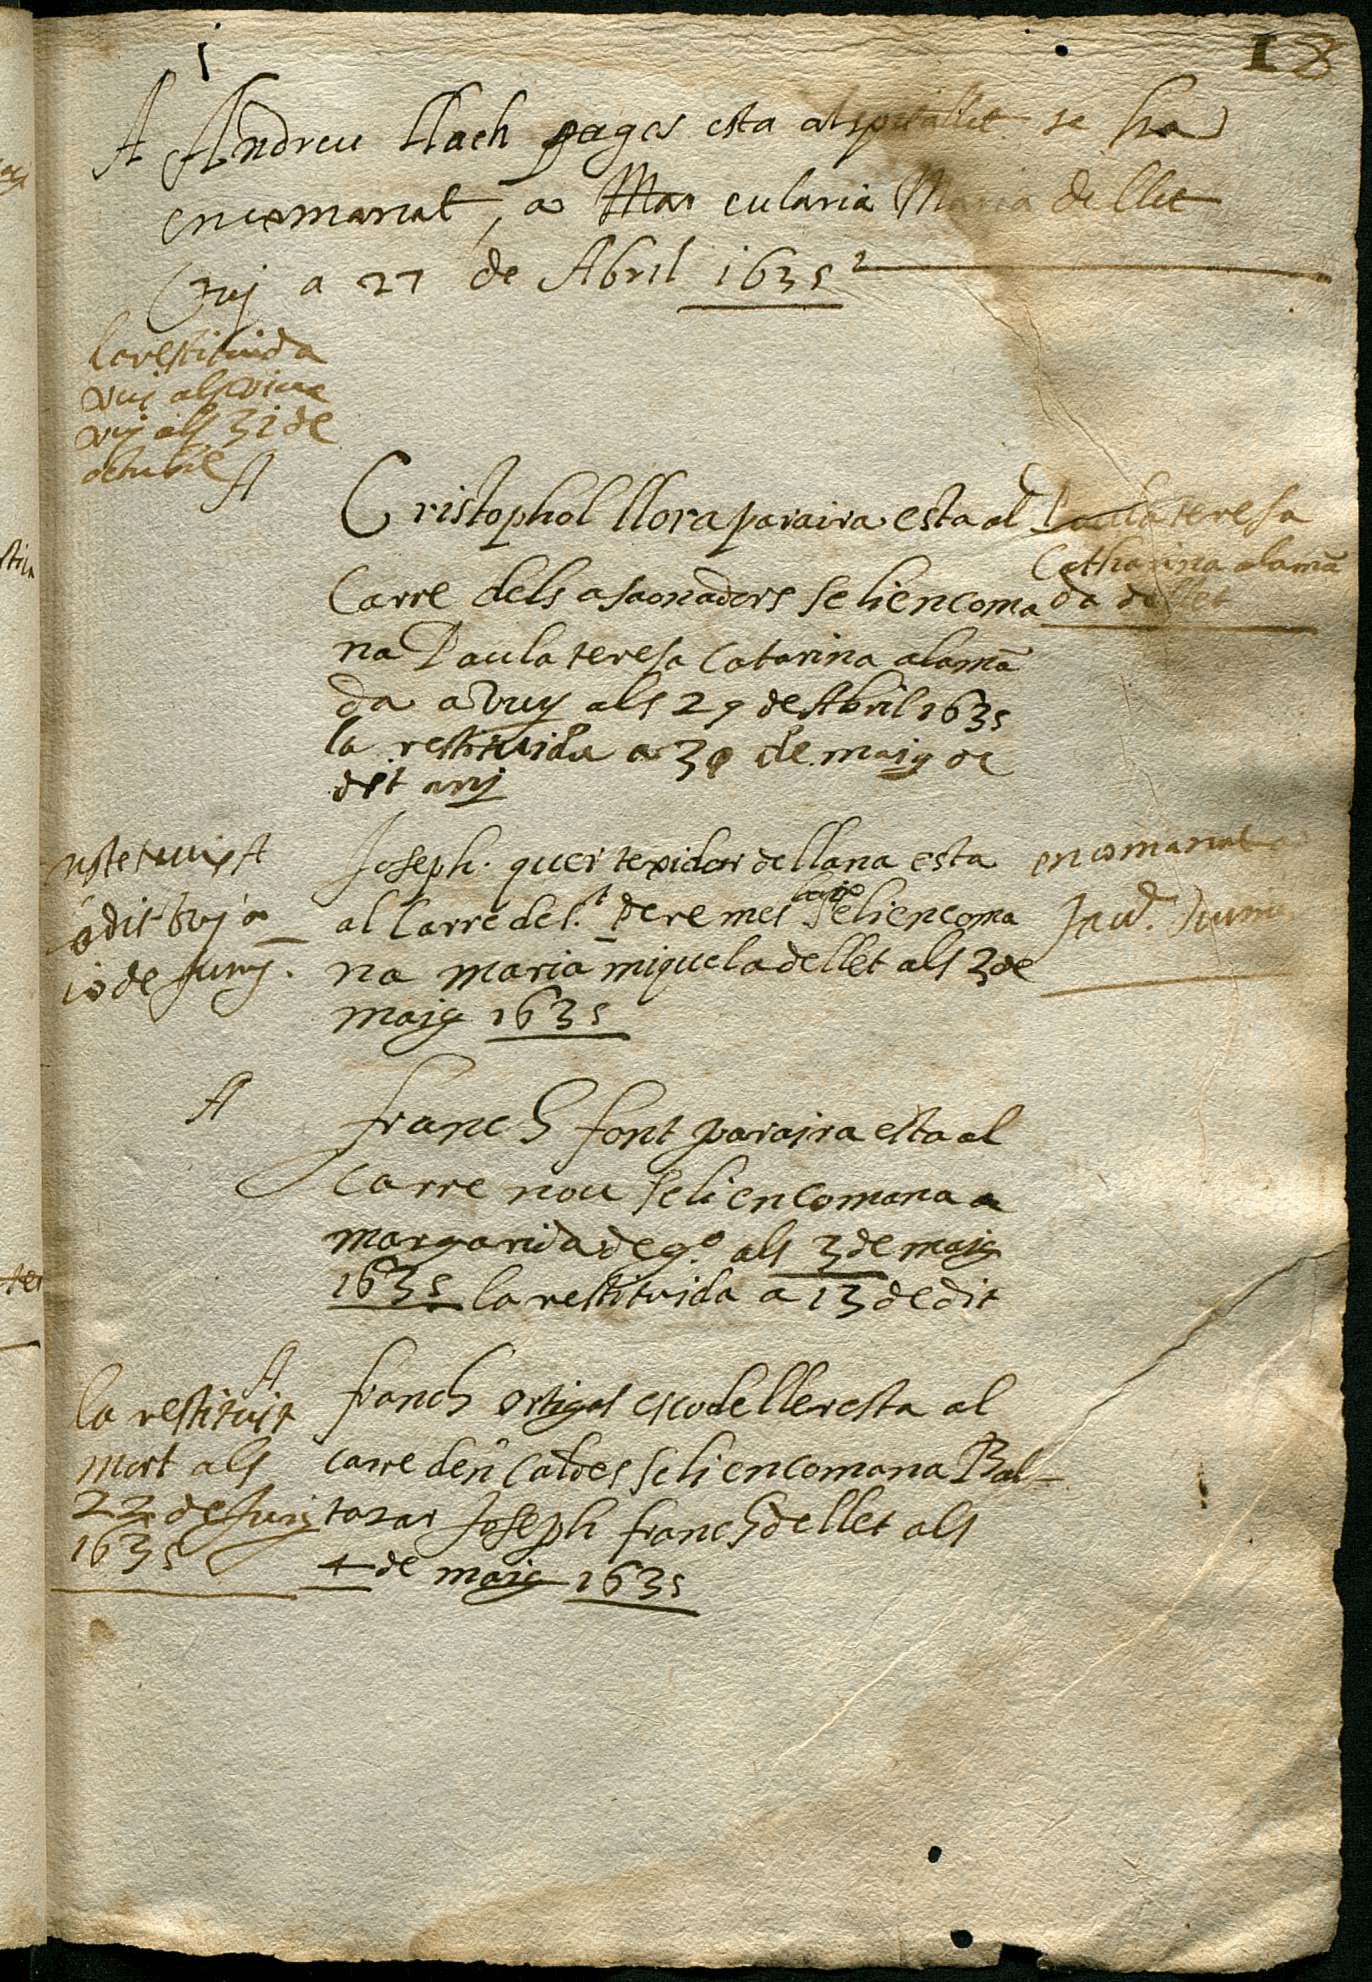 18
A Andreu llach pages esta al spitallet se ha
encomanat, a Mar eularia Maria de llet
Vuy a 27 de Abril 1635
la restituida
vuy als vint
vuy als 31 de
octubre
A
Cristophol llora paraira esta al
Carre dels asaonadors se li encoma
na Paula teresa Catarina alamã
da a Vuy als 29 de Abril 1635
la restituida a 30 de maig de
dit any
Paula teresa
Catharina alamã
da de llet
A
Joseph quer texidor de llana esta
al Carre de s.t Pere mes baix se li encoma
na maria miquela de llet als 3 de
maig 1635
dit Vuj a
10 de Juny.
encomanat
Jau.d
A
franch font paraira esta al
carre nou se li encomana a
margarida de g.o als 3 de maig
1635 la restituida a 13 de dit
A
franch ortigas escodeller esta al
carre den Caldes se li encomana Bal-
tazar Joseph franch de llet als
4 de maig 1635
la restituit
mort als
22 de Juny
1635